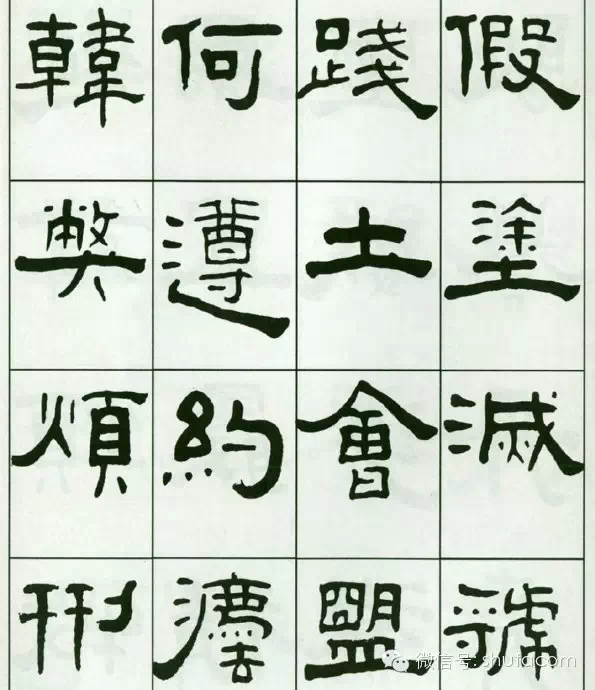 假塗滅虢
踐土會盟
何遵約灋
韓弊煩刑
微信号: shufacom